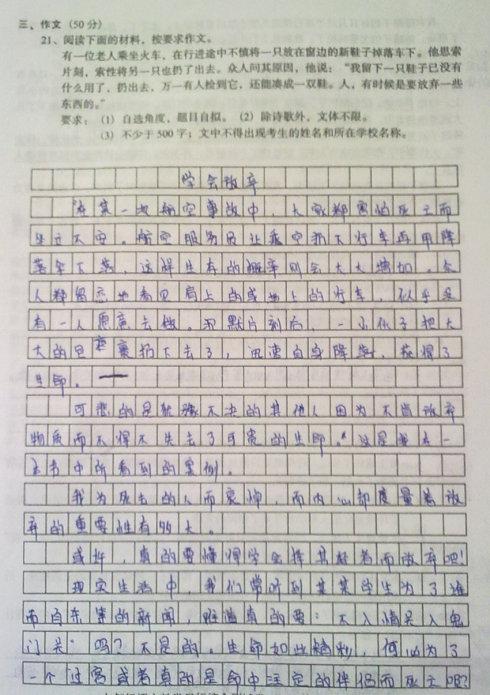 三、作文（50分）
21、阅读下面的材料，按要求作文。
有一位老人乘坐火车，在行进途中不慎将一只放在窗边的新鞋子掉落车下。他思索
片刻，索性将另一只也扔了出去。众人问其原因，他说：“我留下一只鞋子已没有
什么用了，扔出去，万一有人捡到它，还能凑成一双鞋。人，有时候是要放弃一些
东西的。”
要求：（1）自选角度，题目自拟。（2）除诗歌外，文体不限。
（3）不少于500字；文中不得出现考生的姓名和所在学校名称。
学会放弃
“在某一次航空事故中，大家都害怕死亡而
坐立不安。航空服务员让乘客扔下行李再用降
落伞下落，这样生存的概率则会大大增加。众
人都留恋地看见肩上的或地上的行李，似乎没
有一人愿意去做。沉默片刻后，一小伙子把大
大的包裹扔下去了，迅速自身降落，获得了
生命。
可悲的是犹豫不决的其他人因为不肯放弃
物质而不得不失去了可贵的生命。”这是我在一
本书中所看到的案例。
我为死去的人而哀悼，而内心却度量着放
弃的重要性有多大。
或许，真的要懂得学会择其轻者而放弃吧！
现实生活中，我们常听到某某学生为了谁
而自杀的新闻，难道真的要：不入情关入鬼
门关”吗？不是的。生命如此精彩，何必为了
一个过客或者真的是命中注定的伴侣而死亡呢？